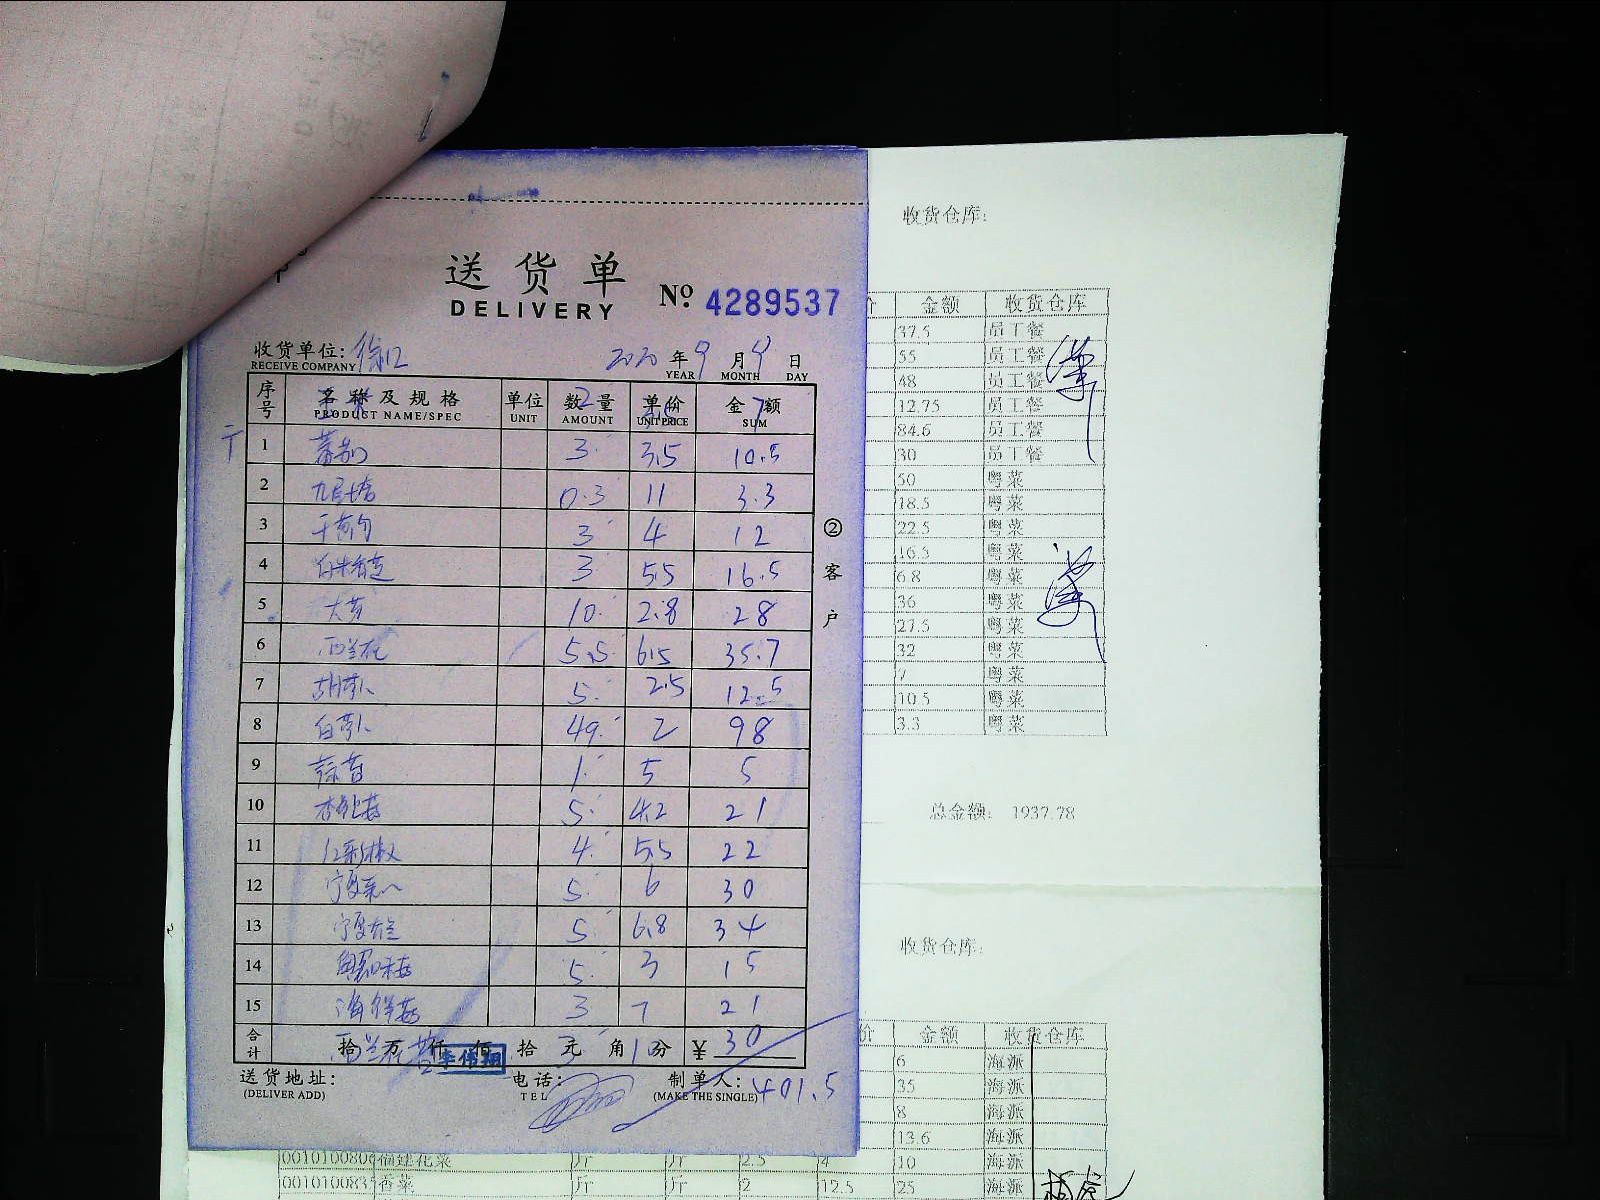 送货单
DELIVERY
No 4289537
收货单位: 徐汇
RECEIVE COMPANY
2020 年 9 月 9 日
YEAR MONTH DAY
序号 名称及规格 单位 数量 单价 金额
PRODUCT NAME/SPEC UNIT AMOUNT UNIT PRICE SUM
2 7
1 蕃茄 3 3.5 10.5
2 九层塔 0.3 11 3.3
3 3 4 12
4 3 5.5 16.5
5 大葱 10 2.8 28
6 西兰花 5.5 6.5 35.7
7 胡萝卜 5 2.5 12.5
8 白萝卜 49 2 98
9 蒜苗 1 5 5
10 杏鲍菇 5 4.2 21
11 红彩椒 4 5.5 22
12 宁夏菜心 5 6 30
13 宁夏芥兰 5 6.8 34
14 5 3 15
15 海鲜菇 3 7 21
合计 拾 万 仟 佰 拾 元 角 分 ¥ 30
西兰花苗 3 10
李伟翔
送货地址: 电话: 制单人: 401.5
(DELIVER ADD) TEL (MAKE THE SINGLE)
②客户
收货仓库:
价 金额 收货仓库
37.5 员工餐
55 员工餐
48 员工餐
12.75 员工餐
84.6 员工餐
30 员工餐
50 粤菜
18.5 粤菜
22.5 粤菜
16.5 粤菜
6.8 粤菜
36 粤菜
27.5 粤菜
32 粤菜
7 粤菜
10.5 粤菜
3.3 粤菜
总金额: 1937.78
收货仓库:
价 金额 收货仓库
6 海派
35 海派
8 海派
13.6 海派
0010100806 福建花菜 斤 斤 2.5 4 10 海派
0010100835 香菜 斤 斤 2 12.5 25 海派